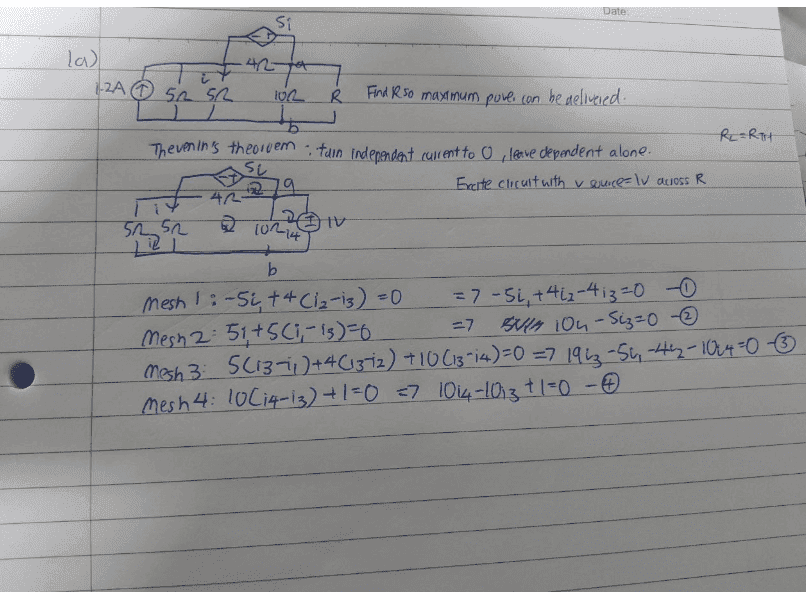 Date:
1a)
5i
4Ω a
1.2A i 5Ω 5Ω 10Ω R Find R so maximum power can be delivered.
b
RL = RTH
Thevenin's theorem : turn independent current to 0, leave dependent alone.
5i
Excite circuit with v source = 1V across R
4Ω a
i
5Ω 5Ω 10Ω i4 1V
b
Mesh 1 : -5i, +4(i2-i3) = 0 => -5i, +4i2 -4i3 = 0 -①
Mesh 2: 5i, +5(i,-i3)=0 => 10i, -5i3=0 -②
Mesh 3: 5(i3-i,)+4(i3-i2) +10(i3-i4)=0 => 19i3 -5i, -4i2 -10i4=0 -③
Mesh 4: 10(i4-i3) +1=0 => 10i4-10i3 +1=0 -④